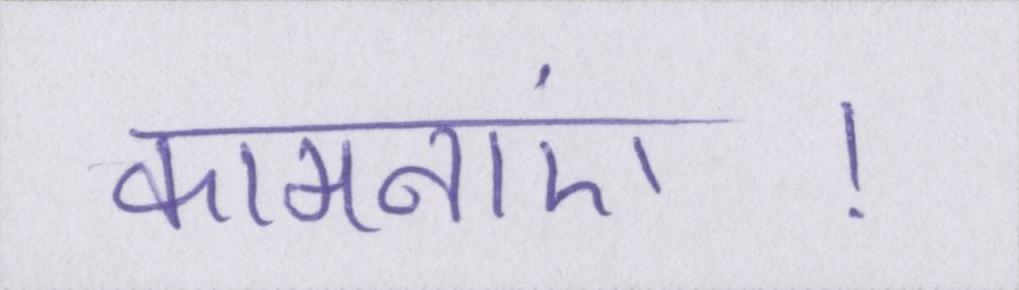 कामनाएं !